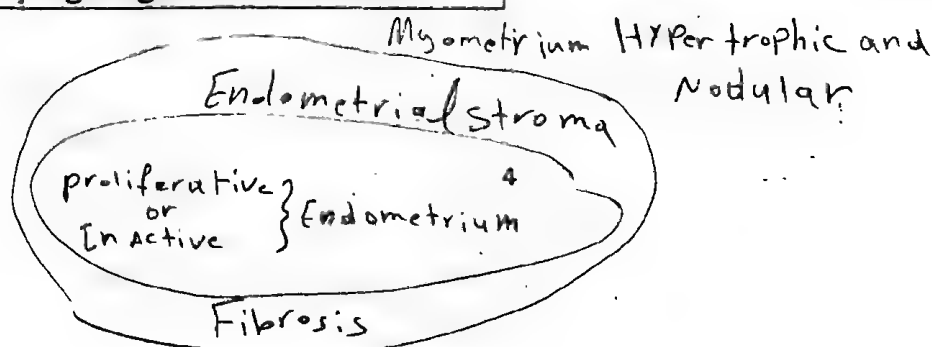 Myometrium Hypertrophic and
Nodular
Endometrial stroma
4
proliferative
or
InActive
} Endometrium
Fibrosis